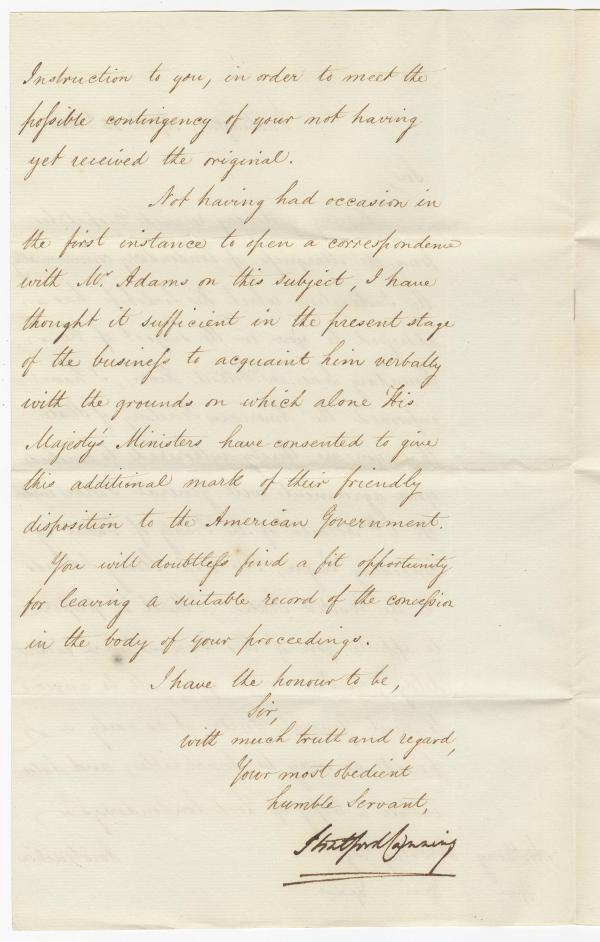 Instruction to you, in order to meet the
poſsible contingency of your not having
yet received the original.
Not having had occasion in
the first instance to open a correspondence
with Mr. Adams on this subject, I have
thought it sufficient in the present stage
of the busineſs to acquaint him verbally
with the grounds on which alone His
Majesty's Ministers have consented to give
this additional mark of their friendly
disposition to the American Government.
You will doubtleſs find a fit opportunity
for leaving a suitable record of the conceſsion
in the body of your proceedings.
I have the honour to be,
Sir,
with much truth and regard,
Your most obedient
humble Servant,
Stratford Canning